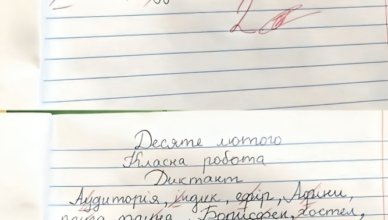 2
Десяте лютого
Класна робота
Диктант
Аудиторія, индик, ефір, Афіни,
Борисфен, хостел,